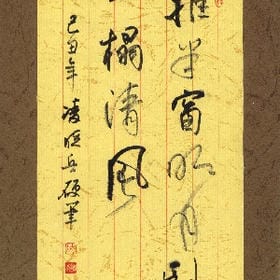 推半窗明月
一榻清风
己丑年 凌晓兵硬笔